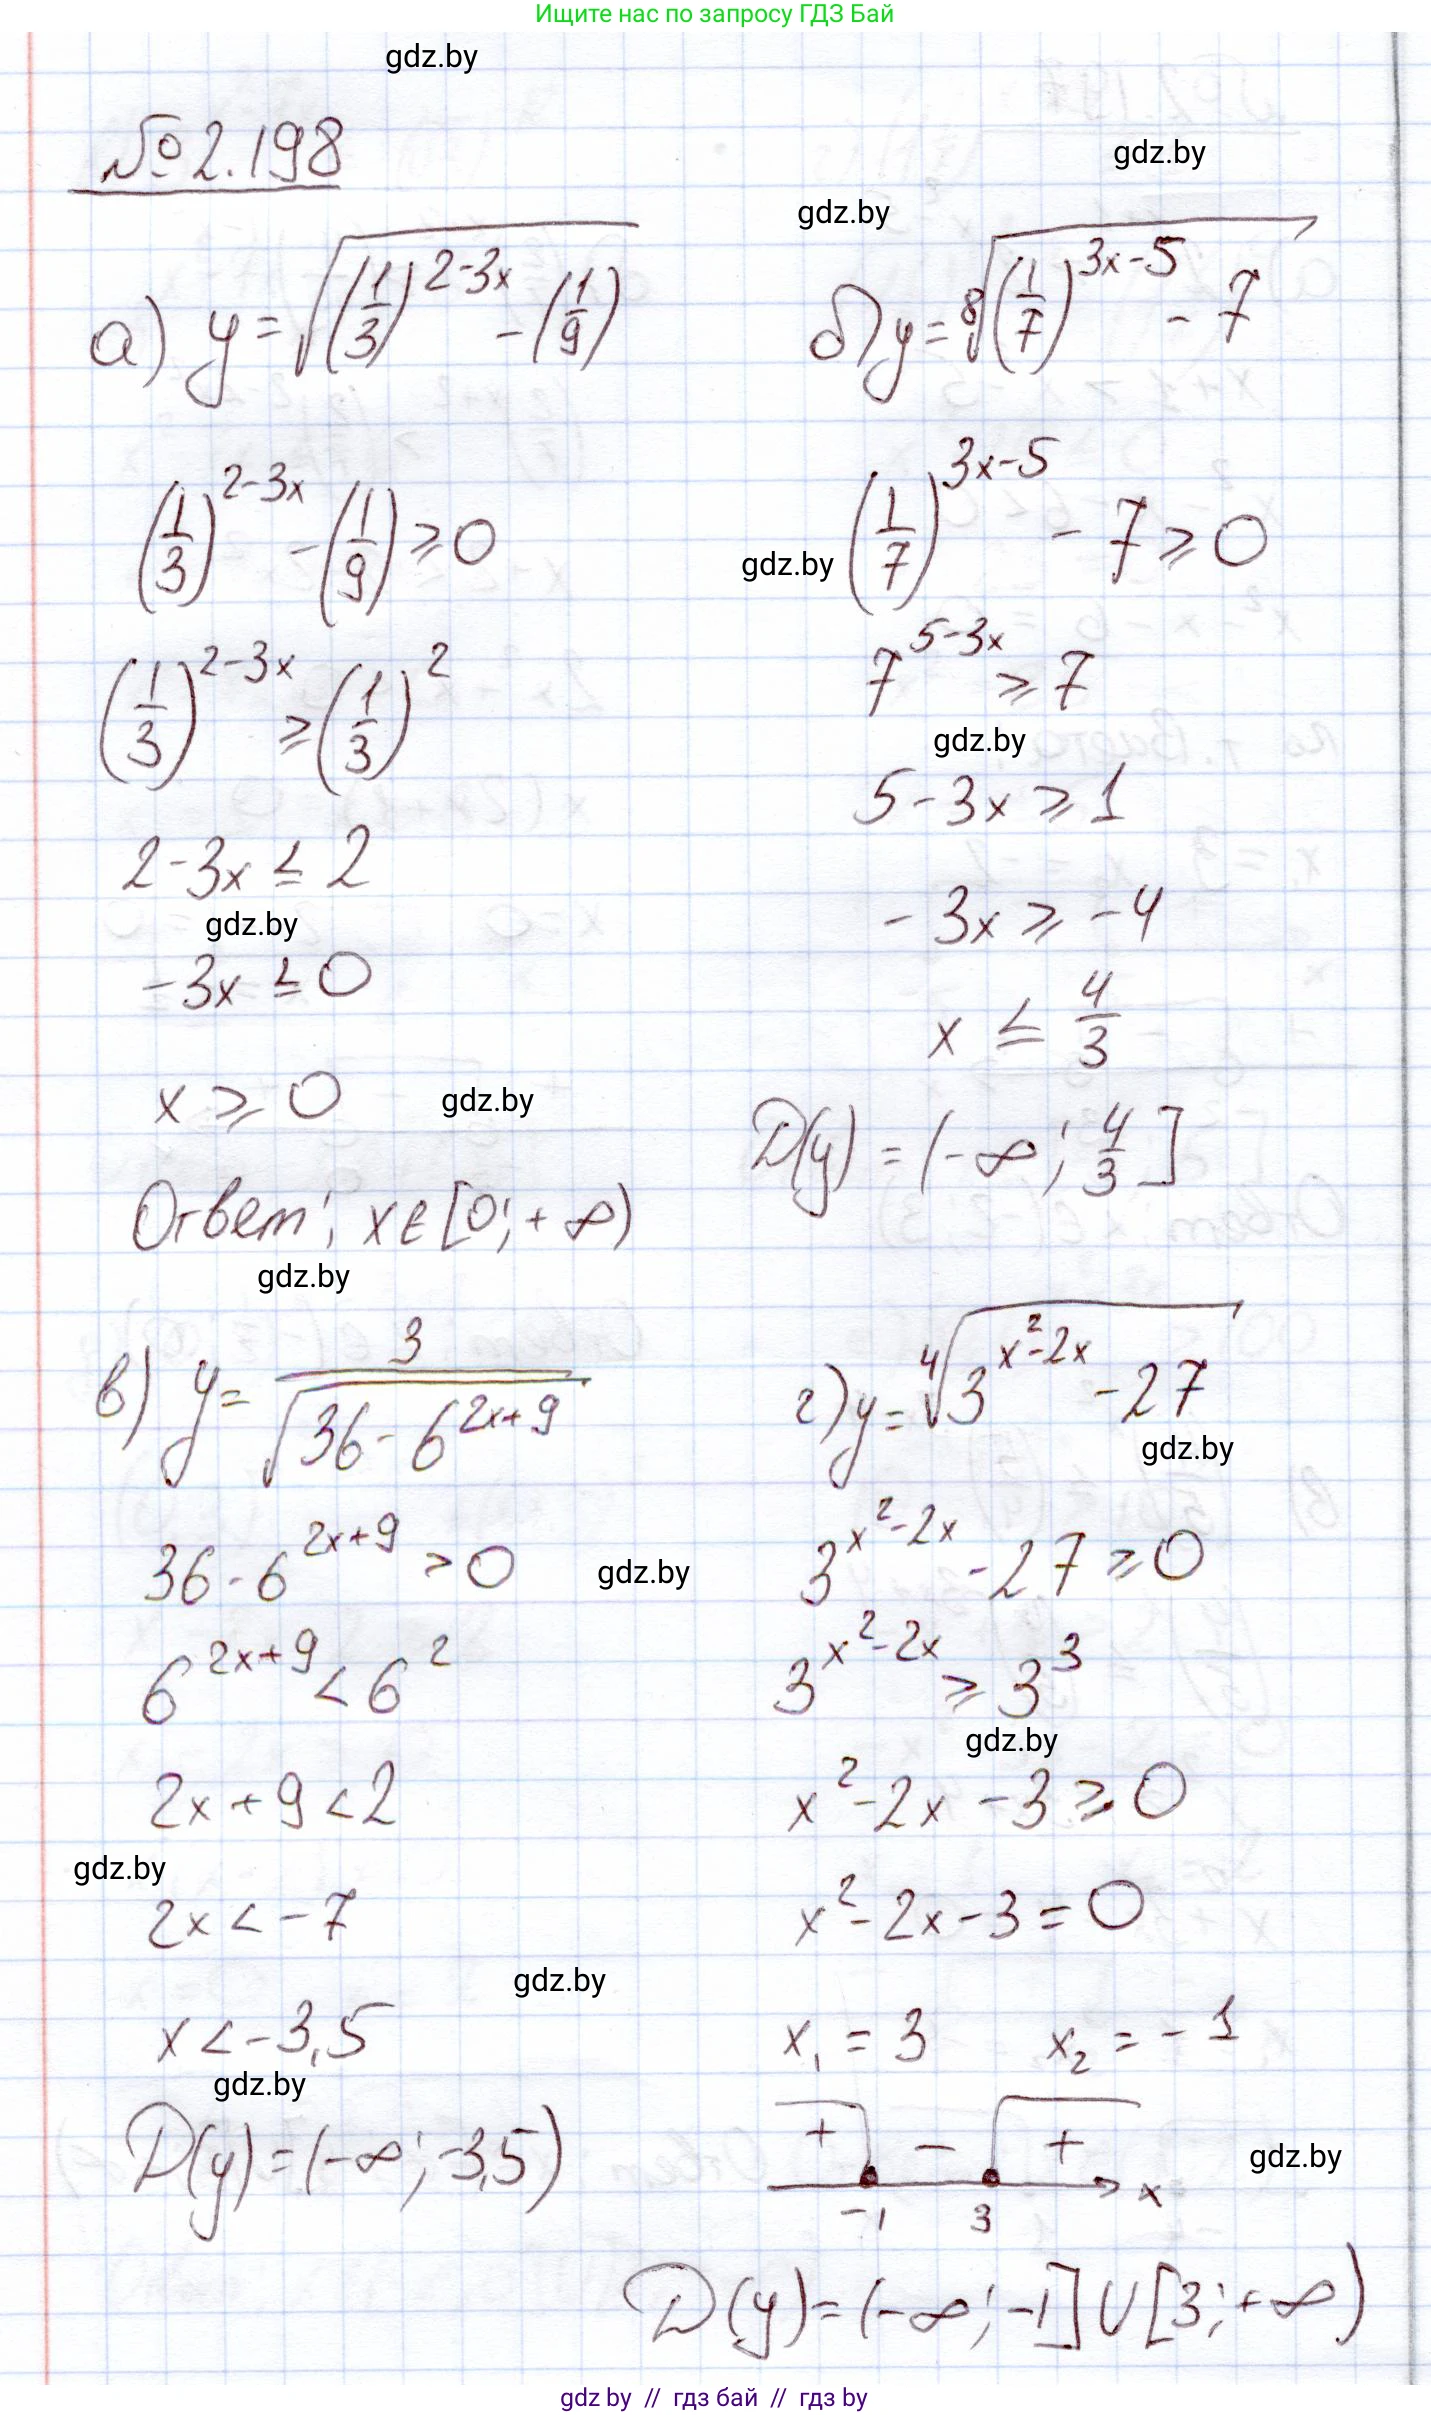 Ищите нас по запросу ГДЗ Бай
gdz.by
№ 2.198
gdz.by
gdz.by
а) y = √((1/3)^(2-3x) - (1/9))
(1/3)^(2-3x) - (1/9) ⩾ 0
(1/3)^(2-3x) ⩾ (1/3)^2
2-3x ≤ 2
gdz.by
-3x ≤ 0
x ⩾ 0
gdz.by
Ответ: x∈[0;+∞)
gdz.by
б) y = ⁸√((1/7)^(3x-5) - 7)
gdz.by
(1/7)^(3x-5) - 7 ⩾ 0
7^(5-3x) ⩾ 7
gdz.by
5-3x ⩾ 1
-3x ⩾ -4
x ≤ 4/3
D(y) = (-∞; 4/3]
в) y = 3/√(36-6^(2x+9))
36-6^(2x+9) > 0
gdz.by
6^(2x+9) < 6^2
2x+9 < 2
gdz.by
2x < -7
gdz.by
x < -3,5
gdz.by
D(y) = (-∞; -3,5)
г) y = ⁴√(3^(x²-2x) - 27)
gdz.by
3^(x²-2x) - 27 ⩾ 0
3^(x²-2x) ⩾ 3^3
gdz.by
x²-2x-3 ⩾ 0
x²-2x-3 = 0
x₁ = 3 x₂ = -1
+ - +
gdz.by
-1 3 x
D(y) = (-∞; -1] U [3; +∞)
gdz.by
gdz by // гдз бай // гдз by